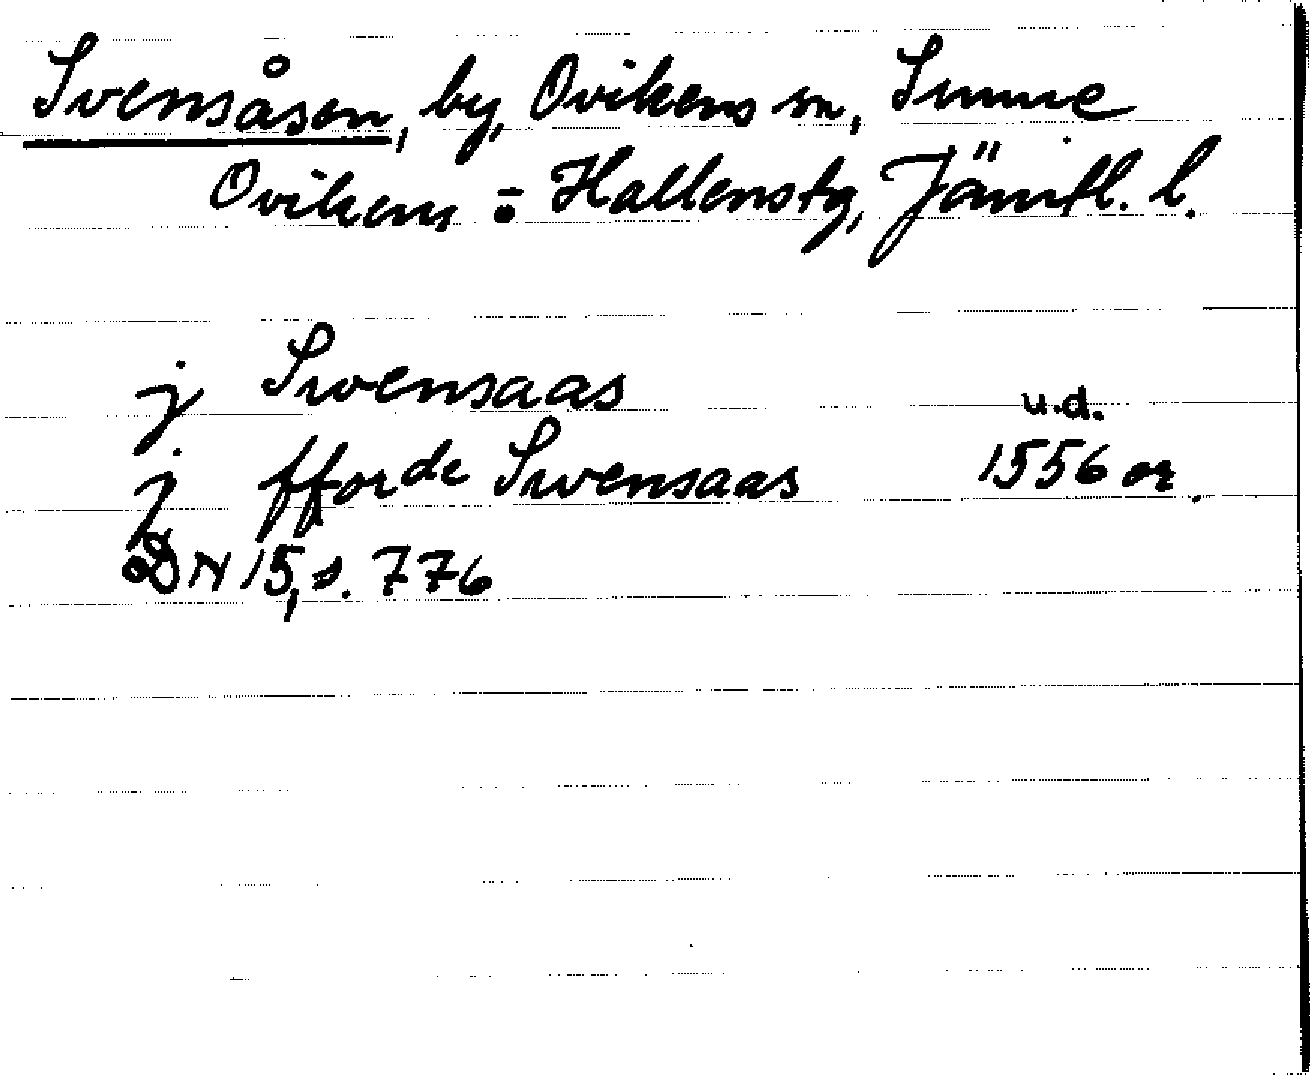 Svensåsen, by, Ovikens sn, Sunne
Ovikens o. Hallenstg, Jämtl. l.
j Swensaas u.d.
j fforde Swensaas 1556 or.
DN 15, s. 776